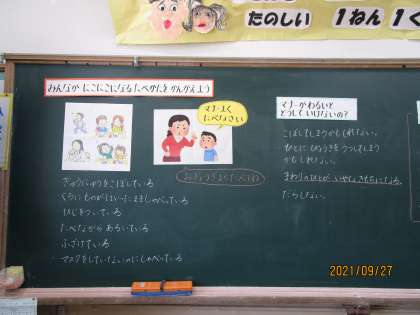 たのしい 1ねん1く
みんなが にこにこになる たべかたを かんがえよう
マナーよく
たべなさい
マナーがわるいと
どうしていけないの？
ぎゅうにゅうをこぼしている
くちにものがはいったまましゃべっている
ひじをついている
たべながら あるいている
ふざけている
マスクをしていないのにしゃべっている
こぼしてしまうかもしれない。
ひとに びょうきを うつしてしまう
かもしれない。
まわりのひとが いやなきもちになる。
だらしない。
2021/09/27